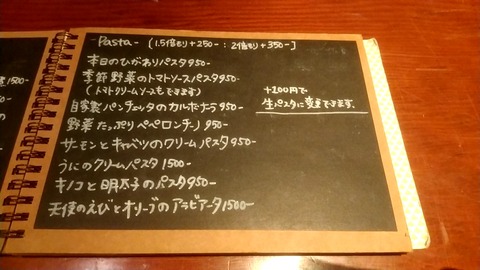 -Pasta- (1.5倍もり+250- : 2倍もり+350-)
本日のひがわりパスタ950-
季節野菜のトマトソースパスタ950-
(トマトクリームソースもできます)
自家製パンチェッタのカルボナーラ950-
野菜たっぷりペペロンチーノ950-
サーモンとキャベツのクリームパスタ950-
うにのクリームパスタ1500-
キノコと明太子のパスタ950-
天使のえびとオリーブのアラビアータ1500-
+200円で
生パスタに変更できます。
1500-